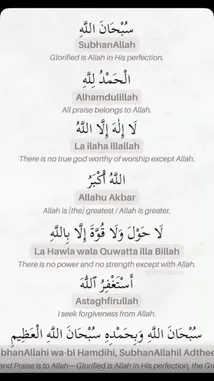 سُبْحَانَ اللَّهِ
SubhanAllah
Glorified is Allah in His perfection.
الْحَمْدُ لِلَّهِ
Alhamdulillah
All praise belongs to Allah.
لَا إِلٰهَ إِلَّا اللَّهُ
La ilaha illallah
There is no true god worthy of worship except Allah.
اللَّهُ أَكْبَرُ
Allahu Akbar
Allah is [the] greatest / Allah is greater.
لَا حَوْلَ وَلَا قُوَّةَ إِلَّا بِاللَّهِ
La Hawla wala Quwatta illa Billah
There is no power and no strength except with Allah.
أَسْتَغْفِرُ اللَّهَ
Astaghfirullah
I seek forgiveness from Allah.
سُبْحَانَ اللَّهِ وَبِحَمْدِهِ سُبْحَانَ اللَّهِ الْعَظِيمِ
bhanAllahi wa-bi Hamdihi, SubhanAllahil Adthee
and Praise is to Allah— Glorified is Allah in His perfection, the G